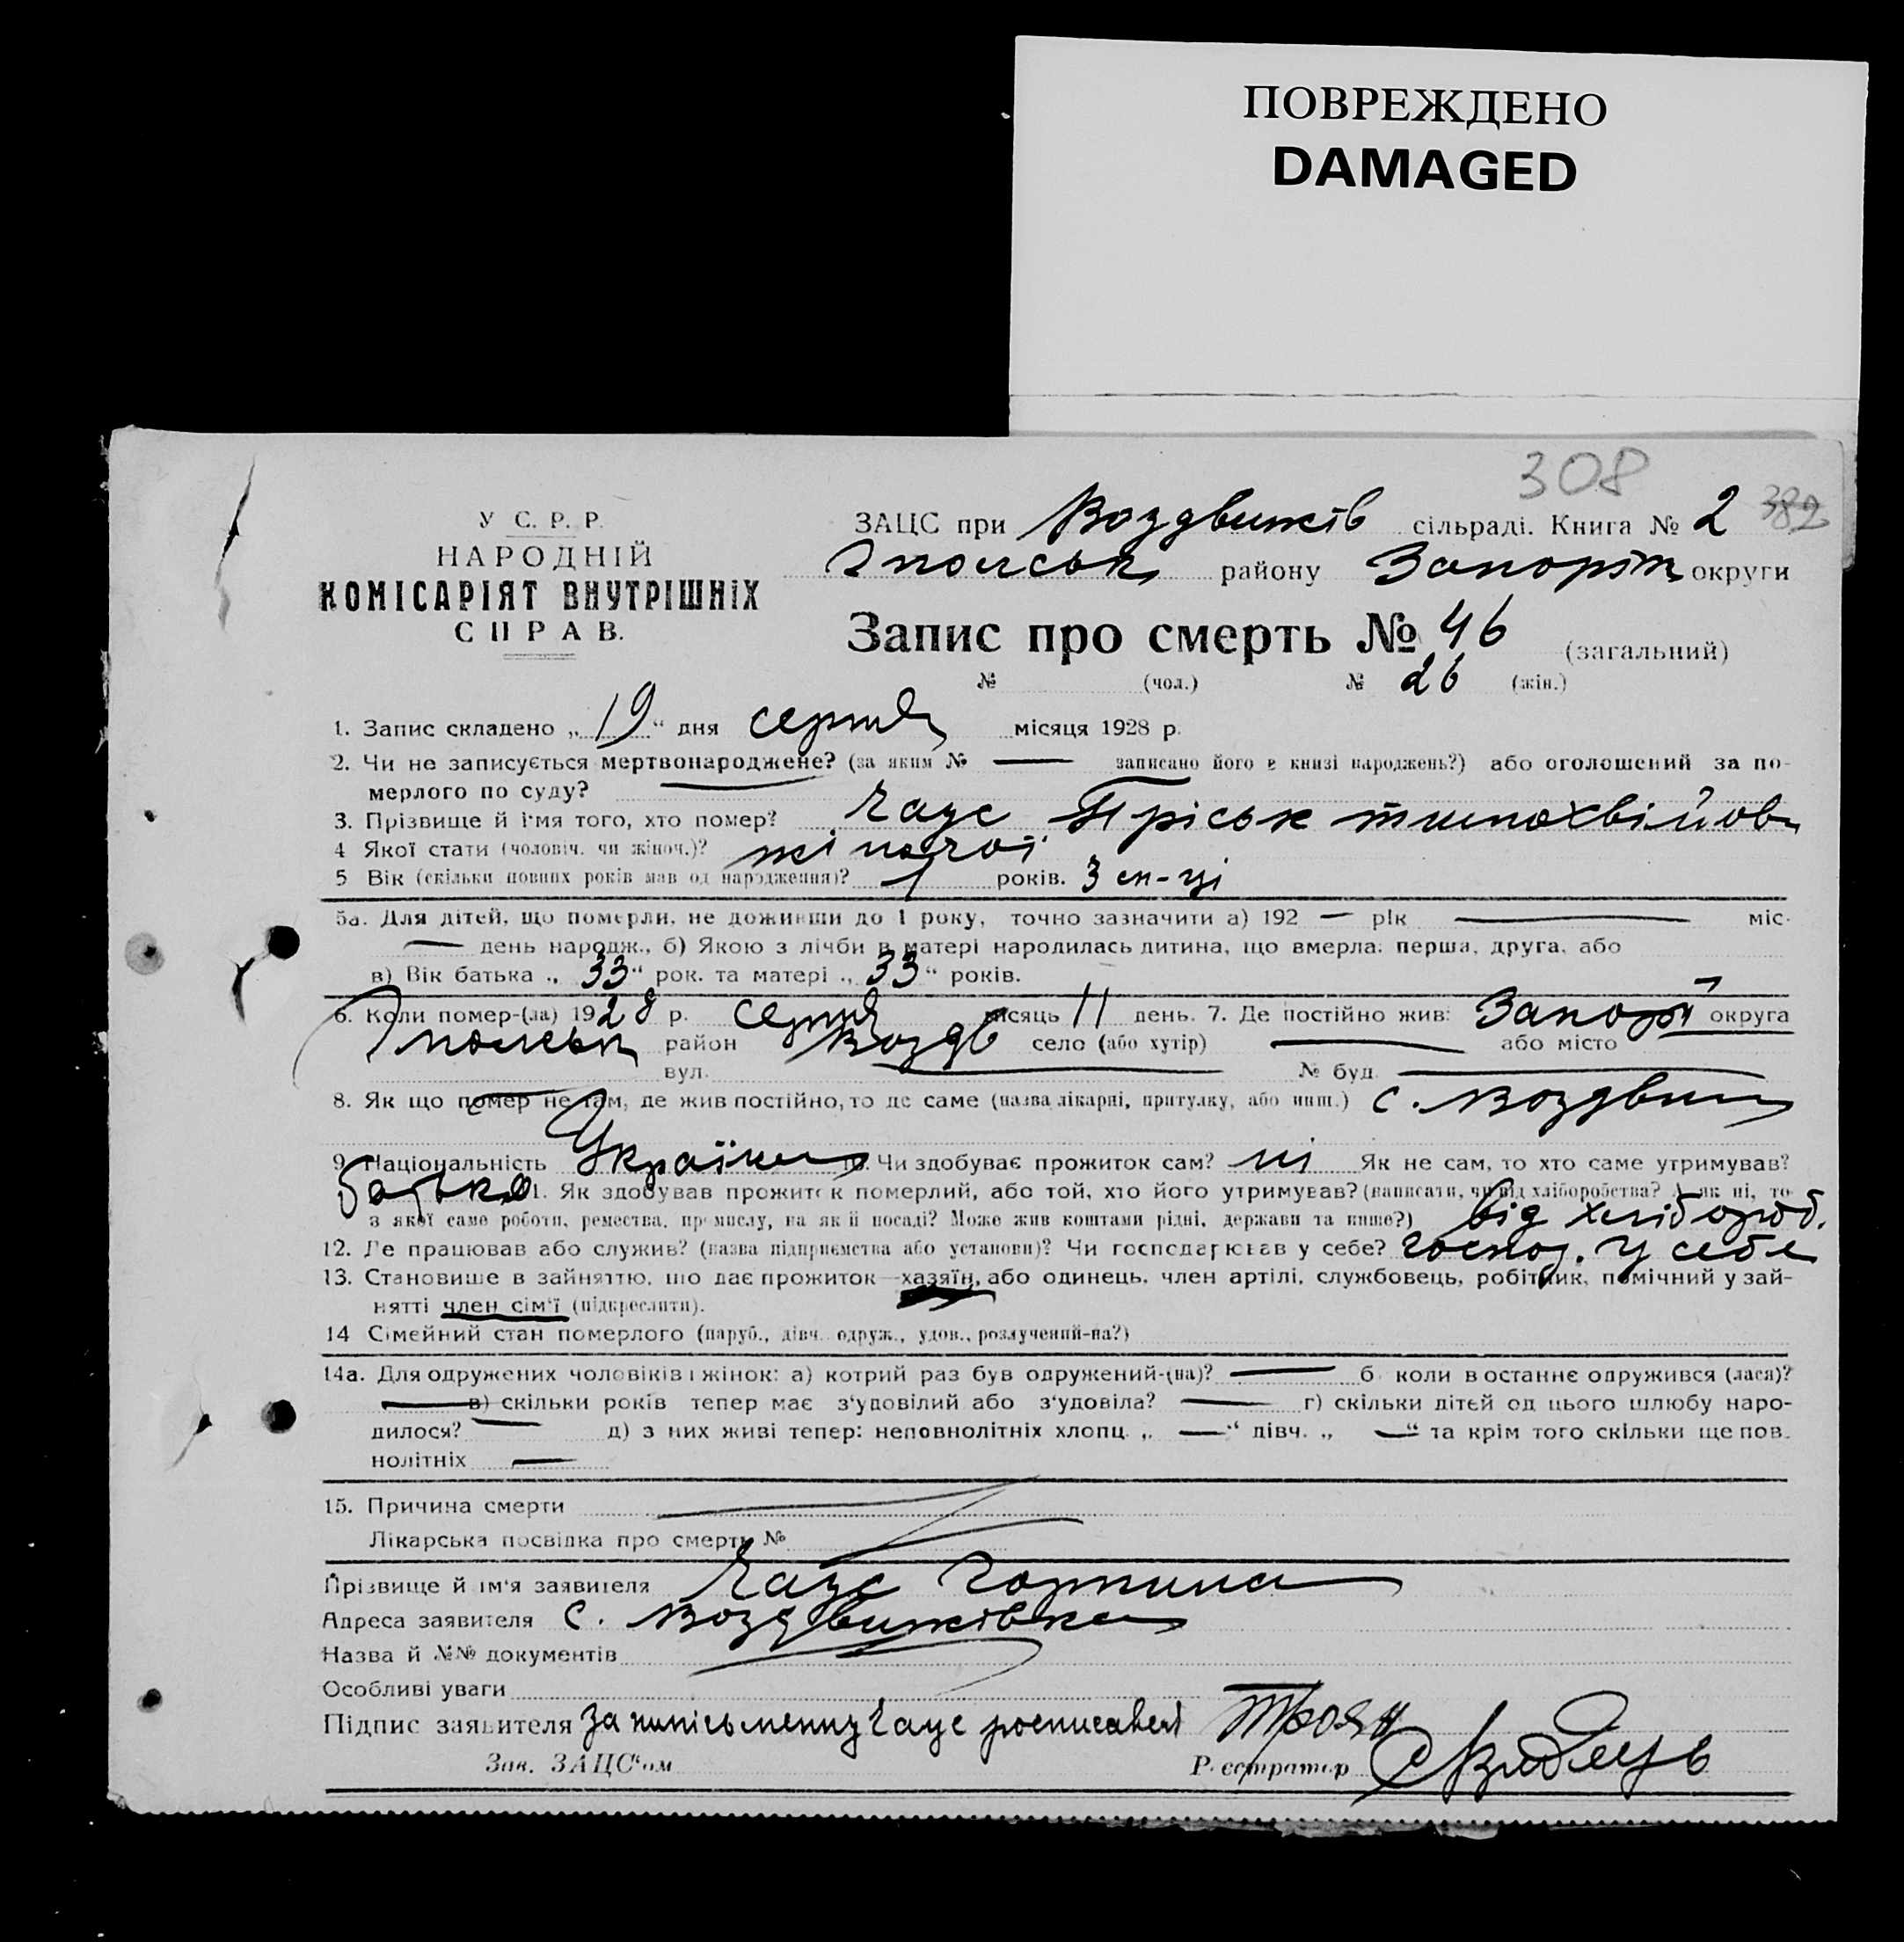 ПОВРЕЖДЕНО
DAMAGED
308
У С. Р. Р.
НАРОДНІЙ
КОМІСАРІЯТ ВНУТРІШНІХ
СПРАВ.
ЗАЦС при Воздвижів сільраді. Книга № 2 382
району Запоріж округи
Запис про смерть № 46 (загальний)
№ (чол.) № 26 (жін.)
1. Запис складено „19“ дня серпня місяця 1928 р.
2. Чи не записується мертвонароджене? (за яким № — записано його в книзі народжень?) або оголошений за по-
мерлого по суду? —
3. Прізвище й ім'я того, хто помер? Чаус Пріськ тимохвійов
4 Якої стати (чоловіч. чи жіноч.)? жіночої
5 Вік (скільки повних років мав од народження)? 1 років. 3 м-ці
5а. Для дітей, що померли, не доживши до 1 року, точно зазначити а) 192 — рік — міс.
— день народж., б) Якою з лічби в матері народилась дитина, що вмерла: перша, друга, або
в) Вік батька „33“ рок. та матері „33“ років.
6. Коли помер-(ла) 1928 р. серпня місяць 11 день. 7. Де постійно жив: Запоріж округа
район Воздв село (або хутір) — або місто
вул. № буд. —
8. Як що помер не там, де жив постійно, то де саме (назва лікарні, притулку, або инш.) с. Воздвиж
9. Національність Українка 10. Чи здобуває прожиток сам? ні Як не сам, то хто саме утримував?
батько 11. Як здобував прожиток померлий, або той, хто його утримував? (написати, чи від хліборобства? А як ні, то
з якої саме роботи, ремества, промислу, на якій посаді? Може жив коштами рідні, держави та инше?) від хлібороб.
12. Де працював або служив? (назва підприємства або установи)? Чи господарював у себе? господ. у себе
13. Становище в зайняттю, що дає прожиток—хазяїн, або одинець, член артілі, службовець, робітник, помічний у зай-
нятті член сім'ї (підкреслити).
14 Сімейний стан померлого (паруб., дівч. одруж., удов., розлучений-на?)
14а. Для одружених чоловіків і жінок: а) котрий раз був одружений-(на)? — б) коли востаннє одружився (лася)?
— в) скільки років тепер має з'удовілий або з'удовіла? — г) скільки дітей од цього шлюбу наро-
дилося? — д) з них живі тепер: неповнолітніх хлопц. „—“ дівч. „—“ та крім того скільки ще пов.
нолітніх —
15. Причина смерти
Лікарська посвідка про смерть №
Прізвище й ім'я заявителя Чаус Горпина
Адреса заявителя с. Воздвижівка
Назва й №№ документів
Особливі уваги
Підпис заявителя За неписьменну Чаус росписався Троян
Зав. ЗАЦС'ом Реєстратор